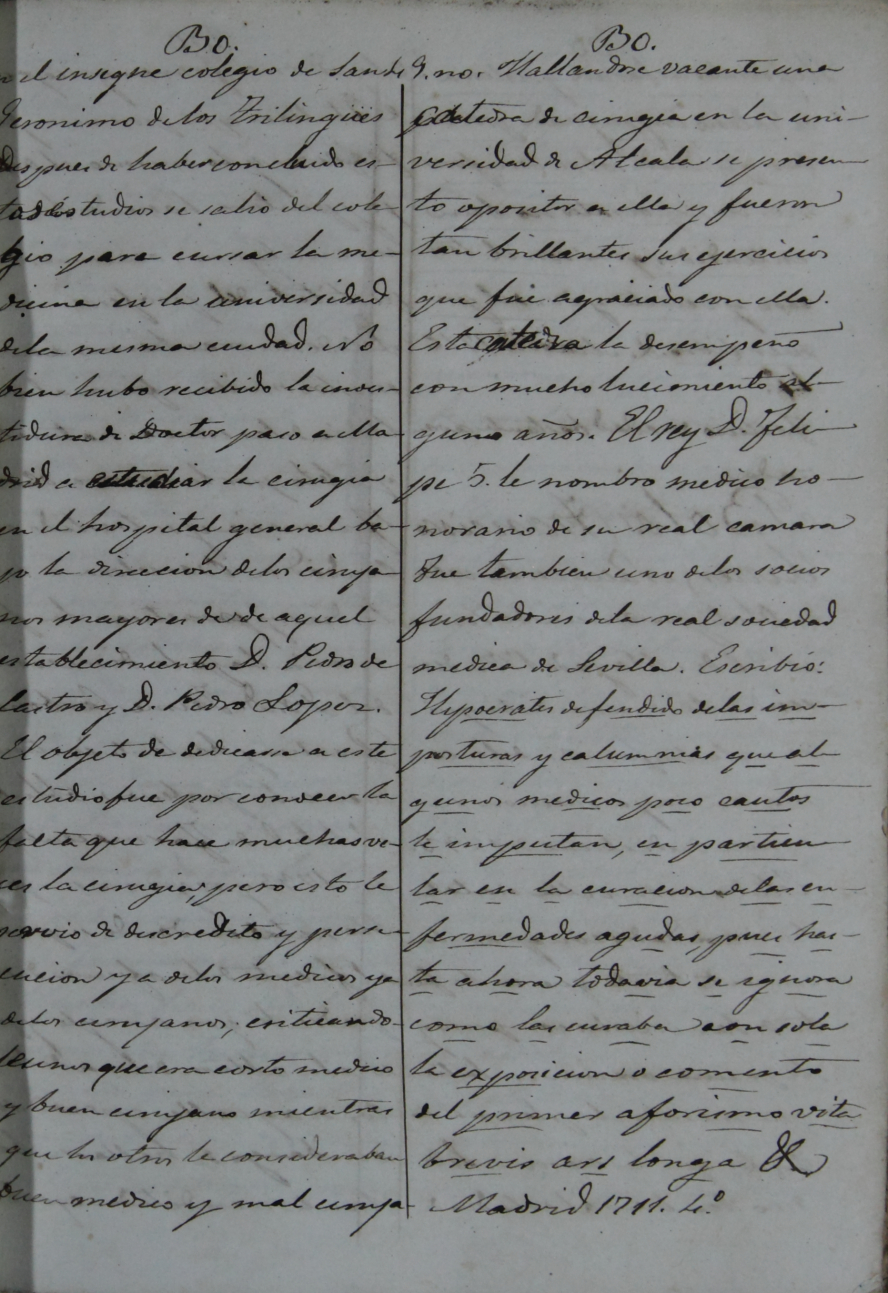 Bo.
n el insigne colegio de San de
Geronimo de los Trilingües
despues de haber concluido es-
tos estudios se salio del cole-
gio para cursar la me-
dicina en la universidad
de la misma ciudad. No
bien hubo recibido la inves-
tidura de Doctor paso a Ma-
drid a estudiar la cirugia
en el hospital general ba-
jo la direccion delos ciruja
nos mayores de de aquel
establecimiento D. Pedro de
Castro y D. Pedro Lopez.
El objeto de dedicasse a este
estudio fue por conocer la
falta que hace muchas ve-
ces la cirugia; pero esto le
servio de descredito y perse-
cucion ya delos medicos ya
delos cirujanos; criticando-
le unos que era corto medico
y buen cirujano mientras
que los otros le consideraban
buen medico y mal ciruja-
Bo.
G. no. Hallandose vacante una
catedra de cirugia en la uni-
versidad de Alcala se presen-
to opositor a ella y fueron
tan brillantes sus ejercicios
que fue agraciado con ella.
Esta catedra la desempeño
con mucho lucimiento al-
gunos años. El rey D. Feli-
pe 5. le nombro medico ho-
norario de su real camara
fue tambien uno delos socios
fundadores dela real sociedad
medica de Sevilla. Escribio:
Hypocrates defendido delas im-
posturas y calumnias que al-
gunos medicos poco cautos
le imputan, en particu-
lar en la curacion delas en-
fermedades agudas, pues has-
ta ahora todavia se ignora
como las curaba con sola
la exposicion o comento
del primer aforismo vita
brevis ars longa &
Madrid 1711. 4.º